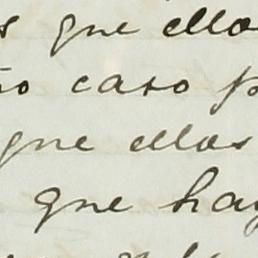 que ellos
caso
que ellas
que hay